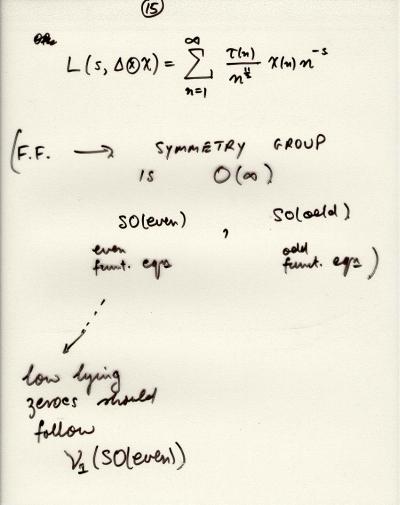 15
L(s, Δ⊗χ) = ∞ Σ n=1 τ(n) / n^{11/2} χ(n) n^{-s}
(F.F. → SYMMETRY GROUP
IS O(∞)
SO(even) , SO(odd)
even odd
funct. eqn funct. eqn)
low lying
zeroes should
follow
ν₁(SO(even))